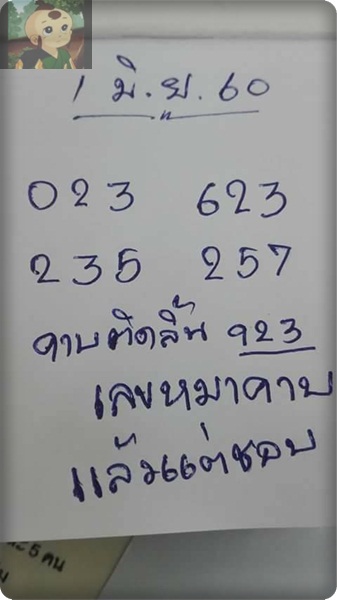 1 มิ.ย.60
023 623
235 257
คาบติดลิ้น 923
เลขหมาคาบ
แล้วแต่ชอบ
5 คน